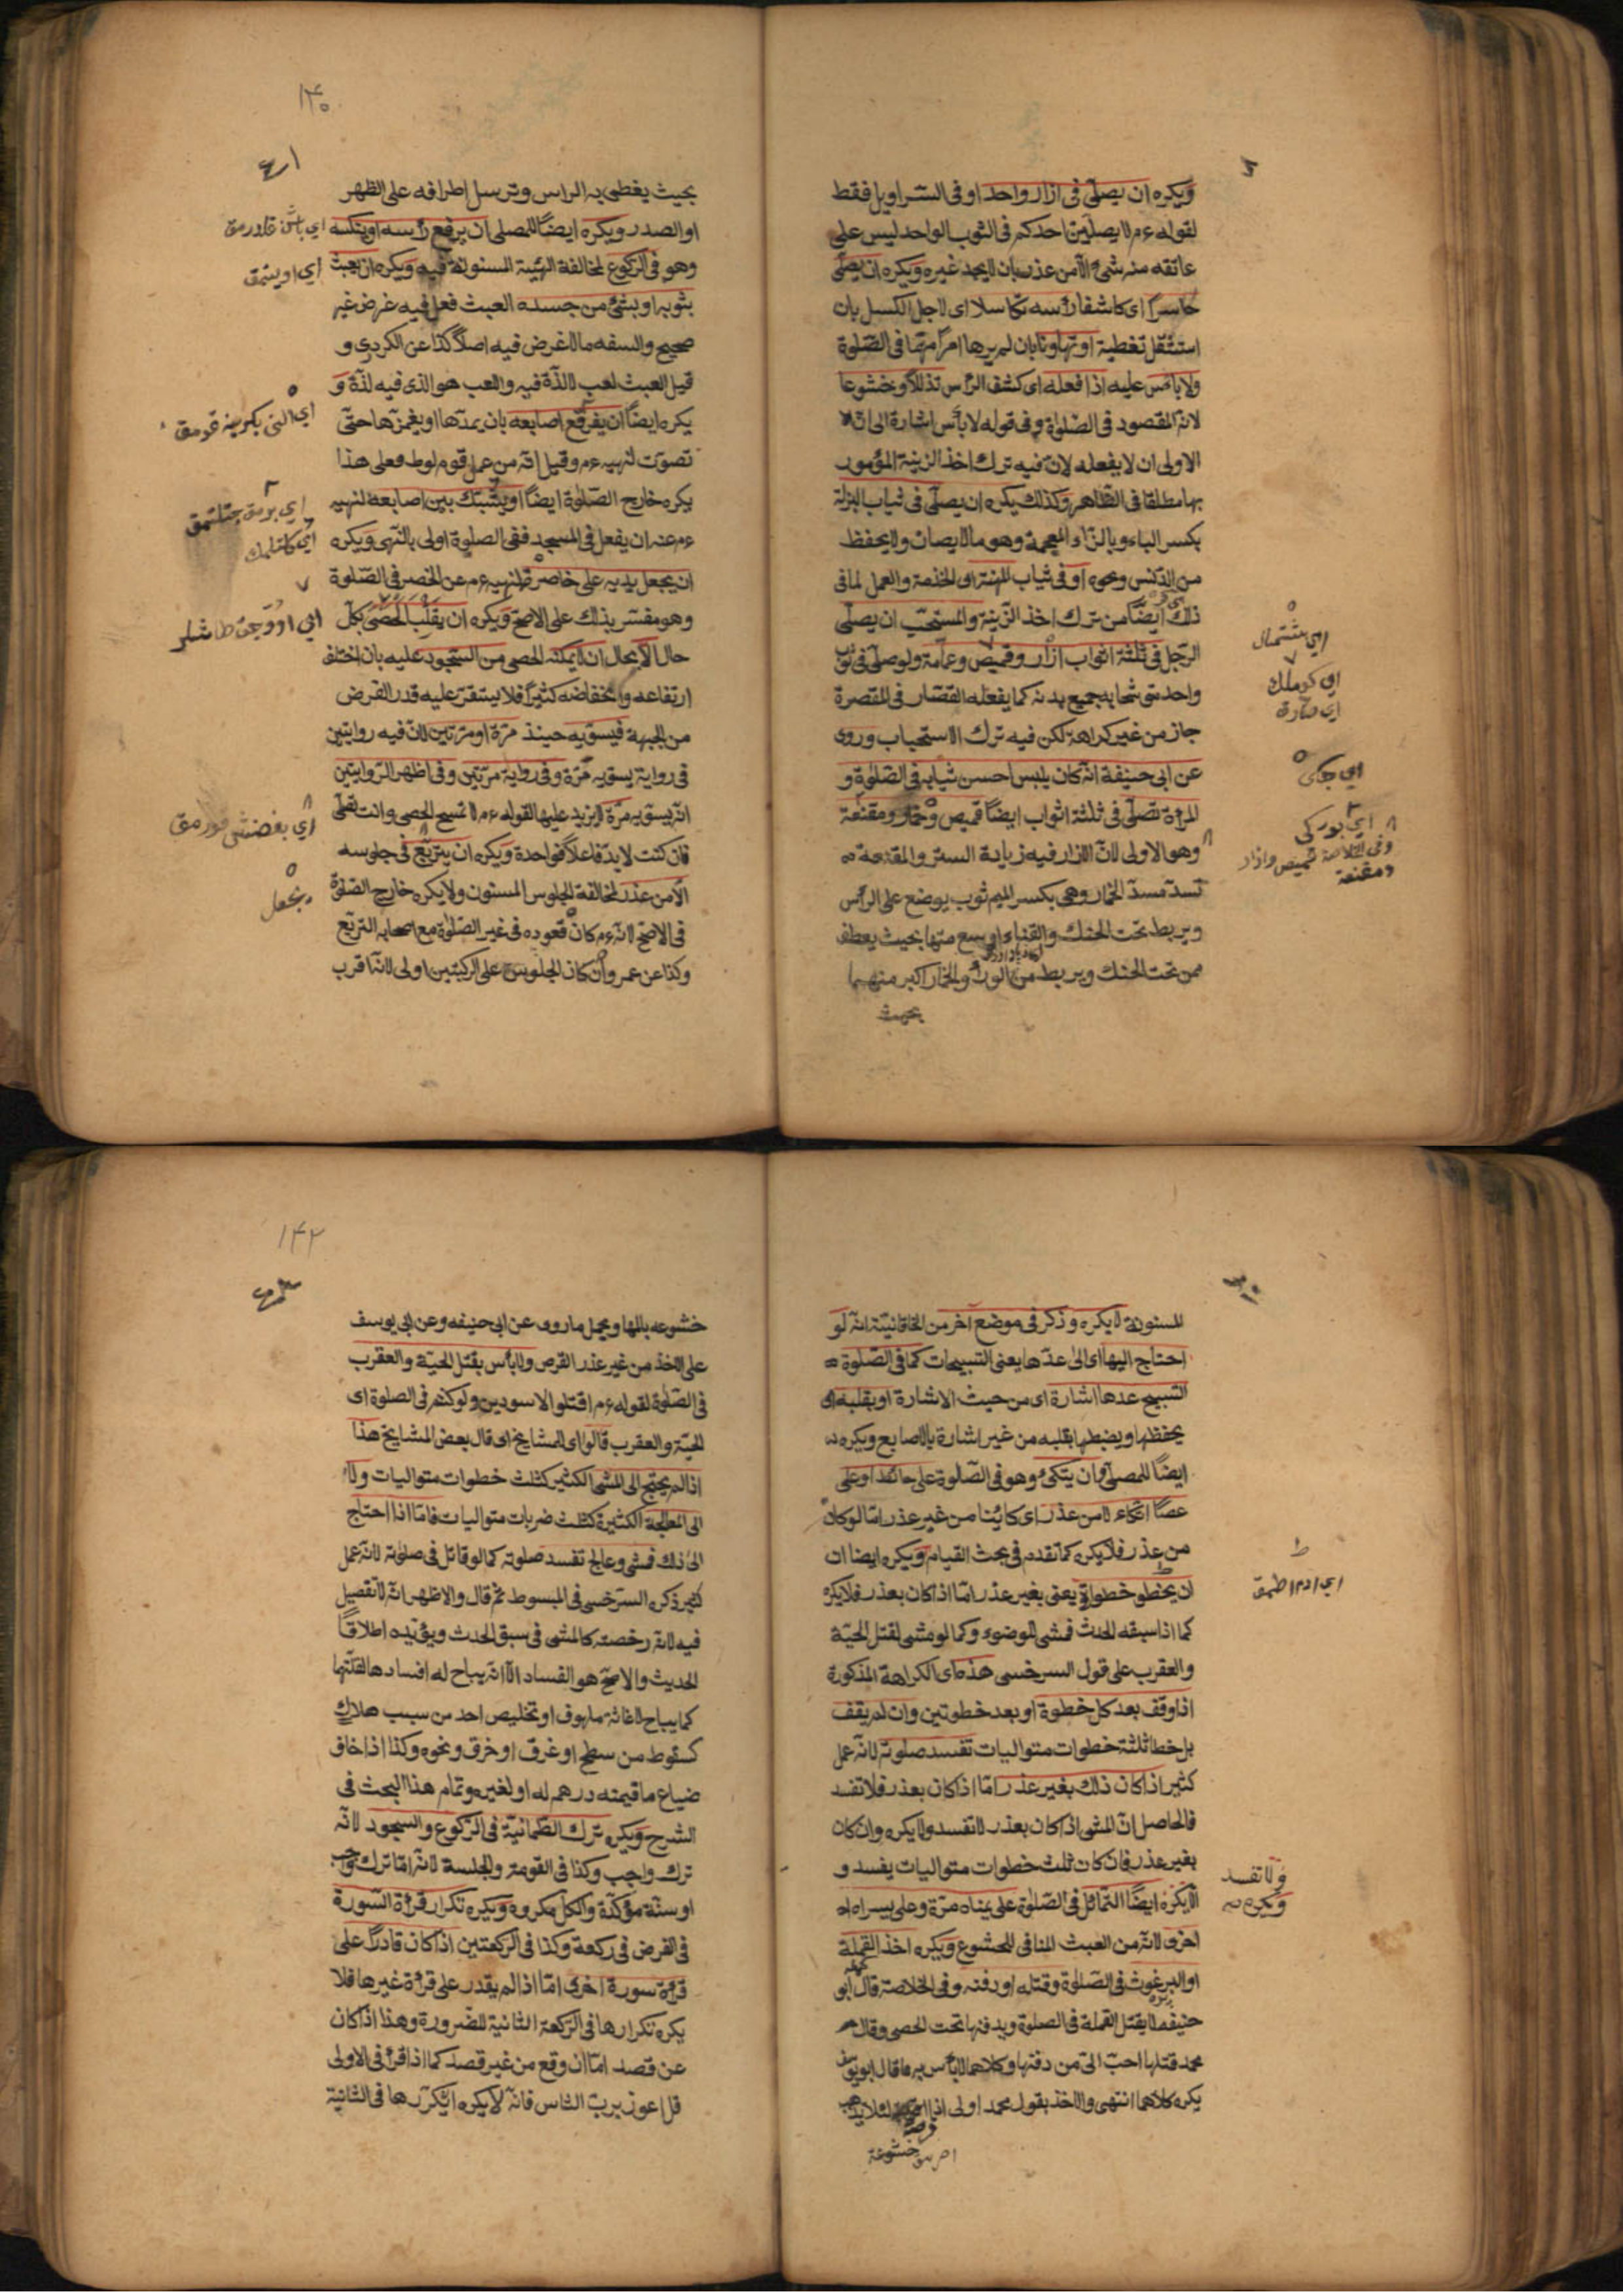 ويكره ان يصلّى فى ازار واحد او فى السراويل فقط
لقوله ءم لا يصلّين احدكم فى الثوب الواحد ليس على
عاتقه منه شئ الّا من عذر بان لا يجد غيره ويكره ان يصلّى
حاسرًا اى كاشفا رأسه تكاسلا اى لاجل الكسل بان
استثقل تغطية او تهاونا بان لم يرها امرًا مهمّا فى الصّلوة
ولا بأس عليه اذا فعله اى كشف الرأس تذللًا وخشوعا
لانه المقصود فى الصّلوة وفى قوله لا بأس اشارة الى انّ
الاولى ان لا يفعله لانّ فيه ترك اخذ الزينة المؤمور
بها مطلقا فى الظاهر وكذلك يكره ان يصلّى فى ثياب البزلة
بكسر الباء وبالزّاء المعجمة وهو ما لا يصان ولا يحفظ
من الدّنس ونحوه او فى ثياب المهنة اى الخدمة والعمل لما فى
ذلك ايضًا من ترك اخذ الزّينة والمستحبّ ان يصلّى
الرّجل فى ثلثة اثواب ازار وقميص وعمامة ولو صلّى فى ثوب
واحد متوشّحا به جميع بدنه كما يفعله القصّار فى المقصرة
جاز من غير كراهة لكن فيه ترك الاستحباب وروى
عن ابى حنيفة انّه كان يلبس احسن ثيابه فى الصّلوة و
المرأة تصلّى فى ثلثة اثواب ايضًا قميص وخمار ومقنعة
وهو الاولى لانّ الازار فيه زيادة الستر والمقنعة
تسدّ مسدّ الخمار وهى بكسر الميم ثوب يوضع على الرأس
ويربط تحت الحنك والقناع اوسع منها بحيث يعطف
من تحت الحنك ويربط من الوراء والخمار اكبر منهما
بحيث
اى كوملك
وفى الخلاصة قميص وازار
ومقنعة
١٤٠
بحيث يغطى به الراس وترسل اطرافه على الظهر
او الصدر ويكره ايضًا للمصلى ان يرفع رأسه او ينكسه
وهو فى الركوع لمخالفة الهيئة المسنونة فيه ويكره ان يعبث
بثوبه او بشئ من جسده العبث فعل فيه غرض غير
صحيح والسفه ما لا غرض فيه اصلًا كذا عن الكردرى و
قيل العبث لعب لا لذّة فيه واللعب هو الذى فيه لذّة و
يكره ايضًا ان يفرقع اصابعه بان يمدّها او يغمزها حتّى
تصوّت لنهيه ءم وقيل انّه من عمل قوم لوط فعلى هذا
يكره خارج الصّلوة ايضًا او يشبّك بين اصابعه لنهيه
ءم عنه ان يفعل فى المسجد ففى الصلوة اولى بالنّهى ويكره
ان يجعل يديه على خاصرة لنهيه ءم عن الخصر فى الصّلوة
وهو مفسّر بذلك على الاصحّ ويكره ان يقلّب الحصى بكلّ
حال الّا بحال ان لا يمكنه الحصى من السّجود عليه بان اختلف
ارتفاعه وانخفاضه كثيرًا فلا يستقرّ عليه قدر الفرض
من الجبهة فيسوّيه حينئذ مرّة او مرّتين لانّ فيه روايتين
فى رواية يسوّيه مرّة وفى رواية مرّتين وفى اظهر الرّوايتين
انّه يسوّيه مرّة لا يزيد عليها لقوله ءم لا تمسح الحصى وانت تصلّى
فان كنت لا بدّ فاعلًا فواحدة ويكره ان يتربّع فى جلوسه
الّا من عذر لمخالفة الجلوس المسنون ولا يكره خارج الصّلوة
فى الاصحّ لانّه ءم كان قعوده فى غير الصّلوة مع اصحابه التربّع
وكذا عن عمر وان كان الجلوس على الركبتين اولى لانّه اقرب
المسنونة لا يكره وذكر فى موضع آخر من الخاقانيّة انّه لو
احتاج اليها اى الى عدّها يعنى التسبيحات كما فى الصّلوة
التسبيح عدها اشارة اى من حيث الاشارة او بقلبه اى
يحفظها ويضبطها بقلبه من غير اشارة بالاصابع ويكره
ايضًا للمصلّى ان يتكئ وهو فى الصّلوة على حائط او على
عصًا اتّكاء لا من عذر اى كائنا من غير عذر امّا لو كان
من عذر فلا يكره كما تقدم فى بحث القيام ويكره ايضا ان
ان يخطو خطوة يعنى بغير عذر امّا اذا كان بعذر فلا يكره
كما اذا سبقه الحدث فمشى للوضوء وكما لو مشى لقتل الحيّة
والعقرب على قول السرخسى هذه اى الكراهة المذكورة
اذا وقف بعد كل خطوة او بعد خطوتين وان لم يقف
بل خطا ثلثة خطوات متواليات تفسد صلوته لانّه عمل
كثير اذا كان ذلك بغير عذر امّا اذا كان بعذر فلا تفسد
فالحاصل انّ المشى اذا كان بعذر لا تفسد ولا يكره وان كان
بغير عذر فان كان ثلث خطوات متواليات يفسد و
الّا يكره ايضًا التمائل فى الصّلوة على يمناه مرّة وعلى يسراه
اخرى لانّه من العبث المنافى للخشوع ويكره اخذ القملة
او البرغوث فى الصّلوة وقتله او دفنه وفى الخلاصة قال أبو
حنيفة لا يقتل القملة فى الصلوة ويدفنها تحت الحصى وقال
محمد قتلها احبّ الىّ من دفنها وكلاهما لا بأس به فما قال ابو يوسف
يكره كلاهما انتهى والاخذ بقول محمد اولى اذا لئلا يذهب
خشوعه
ولا تفسد
ويكره
١٤٢
خشوعه بالمها ويحمل ما روى عن ابى حنيفه وعن ابى يوسف
على الاخذ من غير عذر القرص ولا بأس بقتل الحيّة والعقرب
فى الصّلوة لقوله ءم اقتلوا الاسودين ولو كنتم فى الصلوة اى
الحيّة والعقرب قالوا اى المشايخ اى قال بعض المشايخ هذا
اذا لم يحتج الى المشى الكثير كثلث خطوات متواليات ولا
الى المعالجة الكثيرة كثلث ضربات متواليات فامّا اذا احتاج
الى ذلك فمشى وعالج تفسد صلوته كما لو قاتل فى صلوته لانّه عمل
كثير ذكره السّرخسى فى المبسوط ثمّ قال والاظهر انّه لا تفصيل
فيه لانّه رخصة كالمشى فى سبق الحدث ويؤيّده اطلاق
الحديث والاصحّ هو الفساد الّا انّه يباح له افسادها لقتلها
كما يباح لاغاثة ملهوف او تخليص احد من سبب هلاك
كسقوط من سطح او غرق او خرق ونحوه وكذا اذا خاف
ضياع ما قيمته درهم له او لغيره وتمام هذا البحث فى
الشرح ويكره ترك الطّمانيّة فى الرّكوع والسجود لانّه
ترك واجب وكذا فى القومة والجلسة لانّه امّا ترك واجب
او سنّة مؤكّدة والكلّ مكروه ويكره تكرار قرأة السّورة
فى الفرض فى ركعة وكذا فى الركعتين اذا كان قادرًا على
قرأة سورة اخرى امّا اذا لم يقدر على قرأة غيرها فلا
يكره تكرارها فى الرّكعة الثانية للضّرورة وهذا اذا كان
عن قصد امّا ان وقع من غير قصد كما اذا قرأ فى الاولى
قل اعوذ بربّ النّاس فانّه لا يكره ان يكرّرها فى الثانية